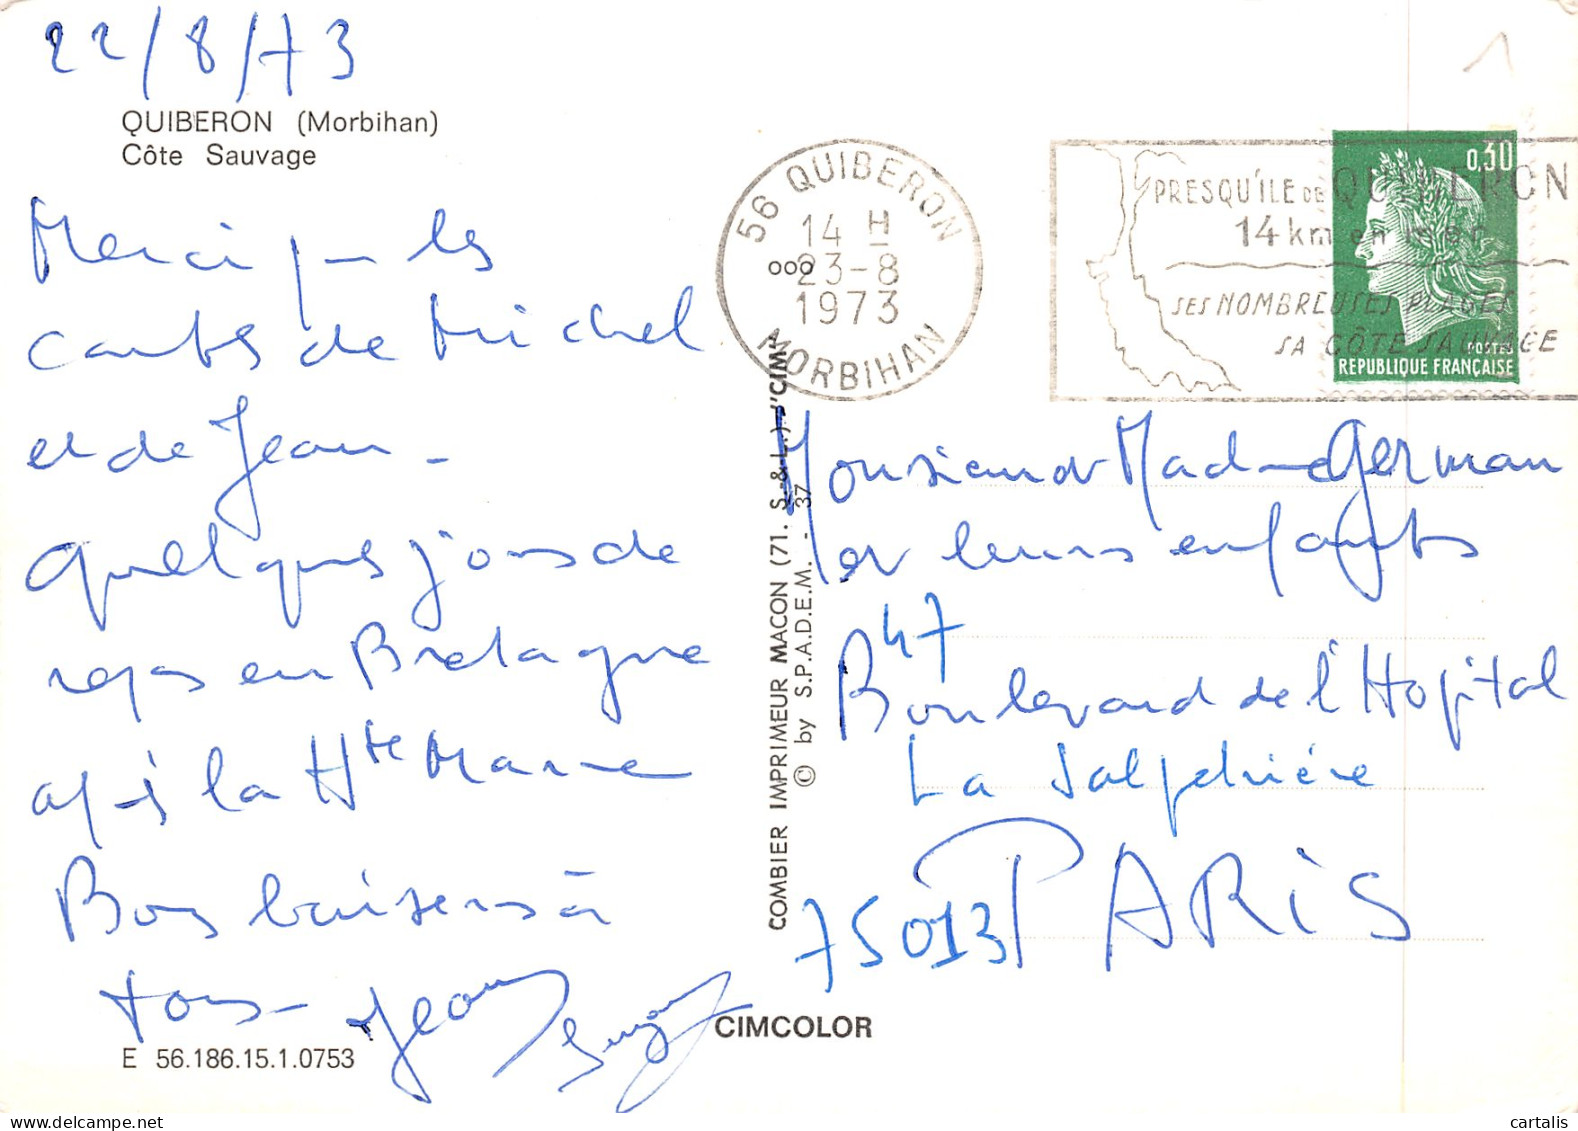 22/8/73
QUIBERON (Morbihan)
Côte Sauvage
Merci pr les
cartes de Michel
et de Jean -
Quelques jours de
repos en Bretagne
après la Hte Marne
Bons baisers à
tous -
Jean Suzan
E 56.186.15.1.0753
COMBIER IMPRIMEUR MACON (71. S.-&-L.) "CIM"
© by S.P.A.D.E.M. - 37
CIMCOLOR
56 QUIBERON
14 H
23-8
1973
MORBIHAN
PRESQU'ILE DE QUIBERON
14 km en mer
SES NOMBREUSES PLAGES
SA CÔTE SAUVAGE
0,30
POSTES
REPUBLIQUE FRANÇAISE
1
Monsieur et Madame German
et leurs enfants
47
Boulevard de l'Hopital
La Salpetrière
75013 PARIS
cartalis